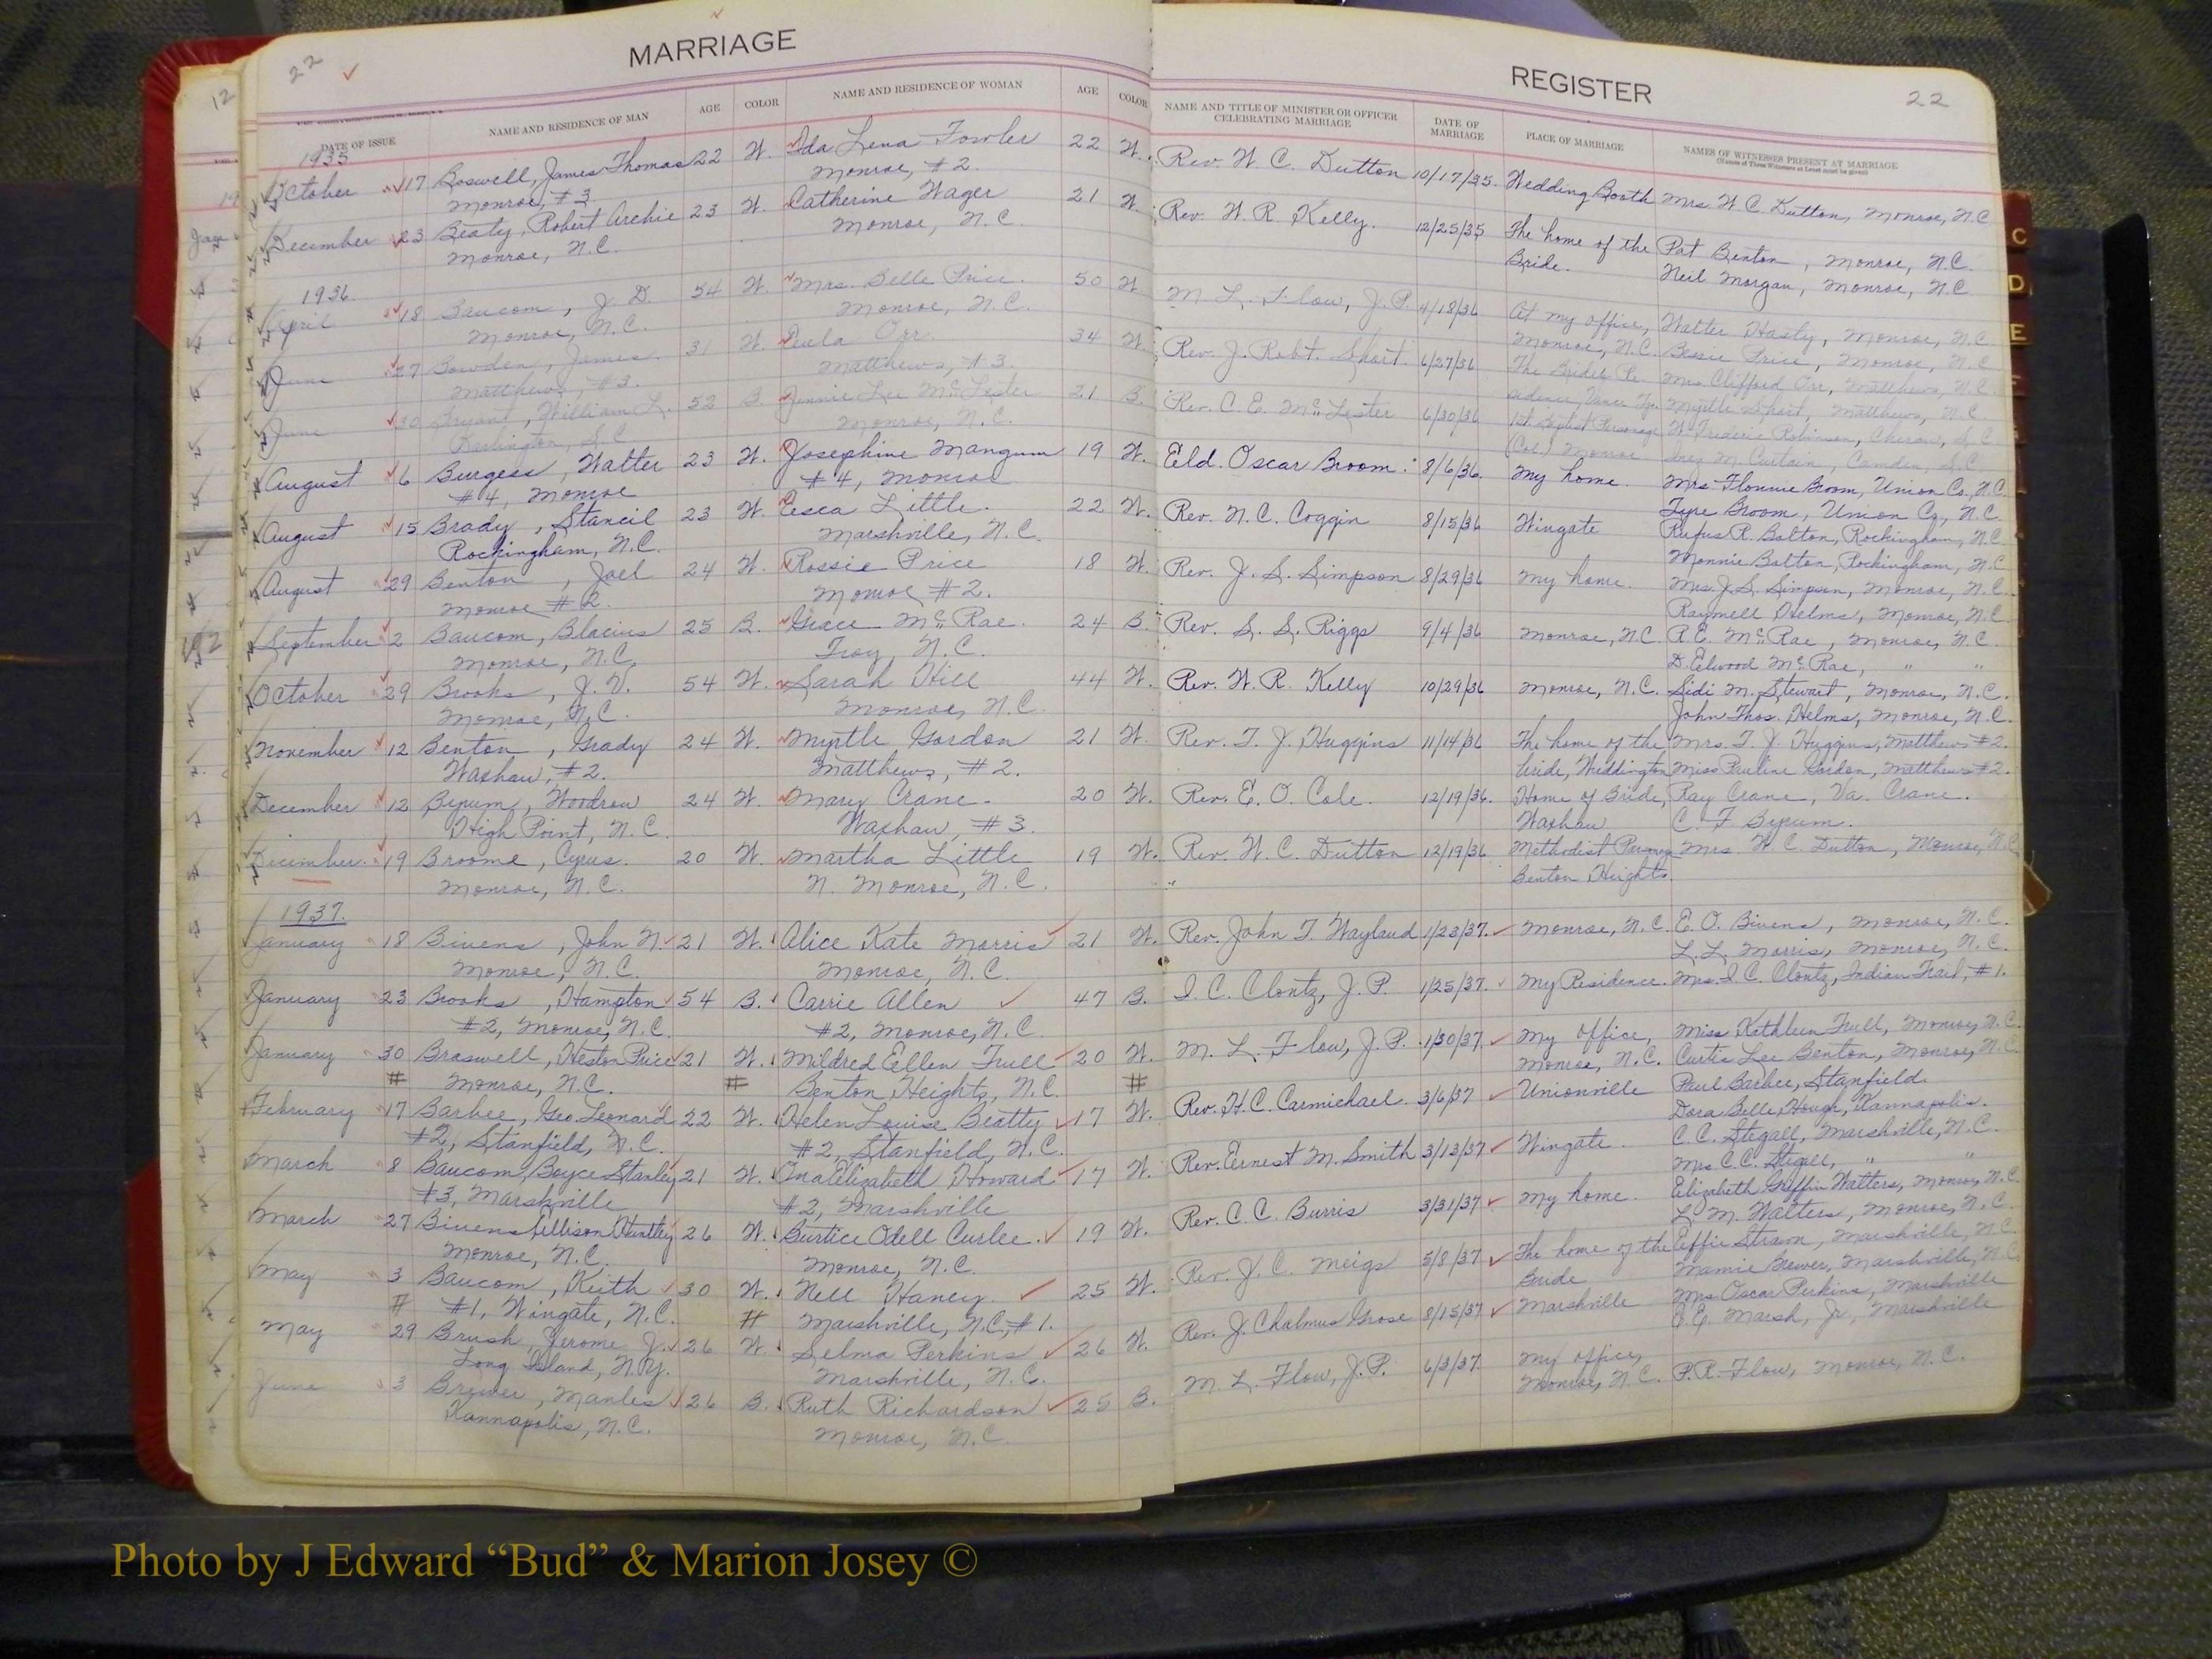 MARRIAGE
REGISTER
22
22
12
DATE OF ISSUE NAME AND RESIDENCE OF MAN AGE COLOR NAME AND RESIDENCE OF WOMAN AGE COLOR NAME AND TITLE OF MINISTER OR OFFICER CELEBRATING MARRIAGE DATE OF MARRIAGE PLACE OF MARRIAGE NAMES OF WITNESSES PRESENT AT MARRIAGE
(Names of Three Witnesses at Least must be given)
1935
October 17 Boswell, James Thomas 22 W. Ida Lena Fowler 22 W. Rev. W. C. Dutton 10/17/35. Wedding Booth Mrs. W. C. Dutton, Monroe, N.C.
Monroe, #3 Monroe, #2.
December 23 Beaty, Robert Archie 23 W. Catherine Wager 21 W. Rev. W. R. Kelly. 12/25/35 The home of the Pat Benton, Monroe, N.C.
Monroe, N.C. Monroe, N.C. Bride. Neil Morgan, Monroe, N.C.
1936
April 18 Baucom, J. D. 54 W. Mrs. Belle Price 50 W M. L. Flow, J.P. 4/18/36 At my office, Walter Hasty, Monroe, N.C.
Monroe, N.C. Monroe, N.C. Monroe, N.C. Bessie Price, Monroe, N.C.
June 27 Bowden, James 31 W. Beula Orr 34 W. Rev. J. Robt. Short. 6/27/36 The Brides Re- Mrs. Clifford Orr, Matthews, N.C.
Matthews, #3. Matthews, #3. sidence, Vance Twp. Myrtle Short, Matthews, N.C.
June 30 Bryant, William L. 52 B. Jennie Lee McLester 21 B. Rev. C. E. McLester 6/30/36 1st Baptist Parsonage W. Frederic Robinson, Cheraw, S.C.
Darlington, S.C. Monroe, N.C. (Col.) Monroe Inez M. Curtain, Camden, S.C.
August 6 Burgess, Walter 23 W. Josephine Mangum 19 W. Eld. Oscar Broom. 8/6/36. My home. Mrs. Flonnie Broom, Union Co., N.C.
#4, Monroe #4, Monroe Tyre Broom, Union Co., N.C.
August 15 Brady, Stancil 23 W. Esca Little. 22 W. Rev. N. C. Coggin 8/15/36 Wingate Rufus R. Bolton, Rockingham, N.C.
Rockingham, N.C. Marshville, N.C. Monnie Bolton, Rockingham, N.C.
August 29 Benton, Joel 24 W. Rossie Price 18 W. Rev. J. S. Simpson 8/29/36 My home. Mrs. J. S. Simpson, Monroe, N.C.
Monroe #2. Monroe #2. Raymell Helms, Monroe, N.C.
September 2 Baucom, Blacius 25 B. Grace McRae. 24 B. Rev. S. S. Riggs 9/4/36 Monroe, N.C. R. E. McRae, Monroe, N.C.
Monroe, N.C. Troy, N.C. D. Elwood McRae, " "
October 29 Brooks, J. V. 54 W. Sarah Hill 44 W. Rev. W. R. Kelly 10/29/36 Monroe, N.C. Sidi M. Stewart, Monroe, N.C.
Monroe, N.C. Monroe, N.C. John Thos. Helms, Monroe, N.C.
November 12 Benton, Grady 24 W. Myrtle Gordon 21 W. Rev. T. J. Huggins 11/14/36 The home of the Mrs. T. J. Huggins, Matthews #2.
Waxhaw, #2. Matthews, #2. bride, Weddington Miss Pauline Gordon, Matthews #2.
December 12 Bynum, Woodrow 24 W. Mary Crane. 20 W. Rev. E. O. Cole. 12/19/36. Home of Bride, Ray Crane, Va. Crane.
High Point, N.C. Waxhaw, #3. Waxhaw C. F. Bynum.
December 19 Broome, Cyrus. 20 W. Martha Little 19 W. Rev. W. C. Dutton 12/19/36 Methodist Parsonage Mrs. W. C. Dutton, Monroe, N.C.
Monroe, N.C. N. Monroe, N.C. Benton Heights.
1937.
January 18 Bivens, John N. 21 W. Alice Kate Morris 21 W. Rev. John T. Wayland 1/23/37. Monroe, N.C. E. O. Bivens, Monroe, N.C.
Monroe, N.C. Monroe, N.C. L. L. Morris, Monroe, N.C.
January 23 Brooks, Hampton 54 B. Carrie Allen 47 B. I. C. Clontz, J. P. 1/25/37. My Residence. Mrs. I. C. Clontz, Indian Trail, #1.
#2, Monroe, N.C. #2, Monroe, N.C.
January 30 Braswell, Heston Price 21 W. Mildred Ellen Trull 20 W. M. L. Flow, J.P. 1/30/37 My office, Miss Kathleen Trull, Monroe, N.C.
# Monroe, N.C. # Benton Heights, N.C. # Monroe, N.C. Curtis Lee Benton, Monroe, N.C.
February 17 Barbee, Geo. Leonard 22 W. Helen Louise Beatty 17 W. Rev. H. C. Carmichael 3/6/37 Unionville Paul Barbee, Stanfield.
#2, Stanfield, N.C. #2, Stanfield, N.C. Dora Belle Hough, Kannapolis.
March 8 Baucom, Boyce Stanley 21 W. Ina Elizabeth Howard 17 W. Rev. Ernest M. Smith 3/13/37 Wingate. C. C. Stegall, Marshville, N.C.
#3, Marshville #2, Marshville Mrs. C. C. Stegall, " "
March 27 Bivens, Ellison Huntley 26 W. Burtice Odell Curlee. 19 W. Rev. C. C. Burris 3/31/37 My home. Elizabeth Griffin Walters, Monroe, N.C.
Monroe, N.C. Monroe, N.C. L. M. Walters, Monroe, N.C.
May 3 Baucom, Keith 30 W. Nell Haney. 25 W. Rev. J. C. Meigs 5/8/37 The home of the Effie Strawn, Marshville, N.C.
# #1, Wingate, N.C. # Marshville, N.C. #1. Bride Mamie Brewer, Marshville, N.C.
May 29 Brush, Jerome J. 26 W. Selma Perkins 26 W. Rev. J. Chalmus Grose 8/15/37 Marshville Mrs. Oscar Perkins, Marshville
Long Island, N.Y. Marshville, N.C. Marsh, Jr., Marshville
June 3 Brewer, Manles 26 B. Ruth Richardson 25 B. M. L. Flow, J.P. 6/3/37. My office, P. R. Flow, Monroe, N.C.
Kannapolis, N.C. Monroe, N.C. Monroe, N.C.
C
D
E
Photo by J Edward “Bud” & Marion Josey ©